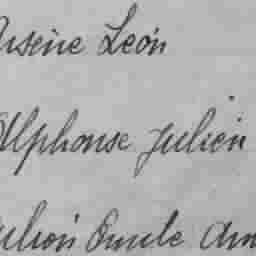 Arsène Léon
Alphonse Julien
Julien Emile Am